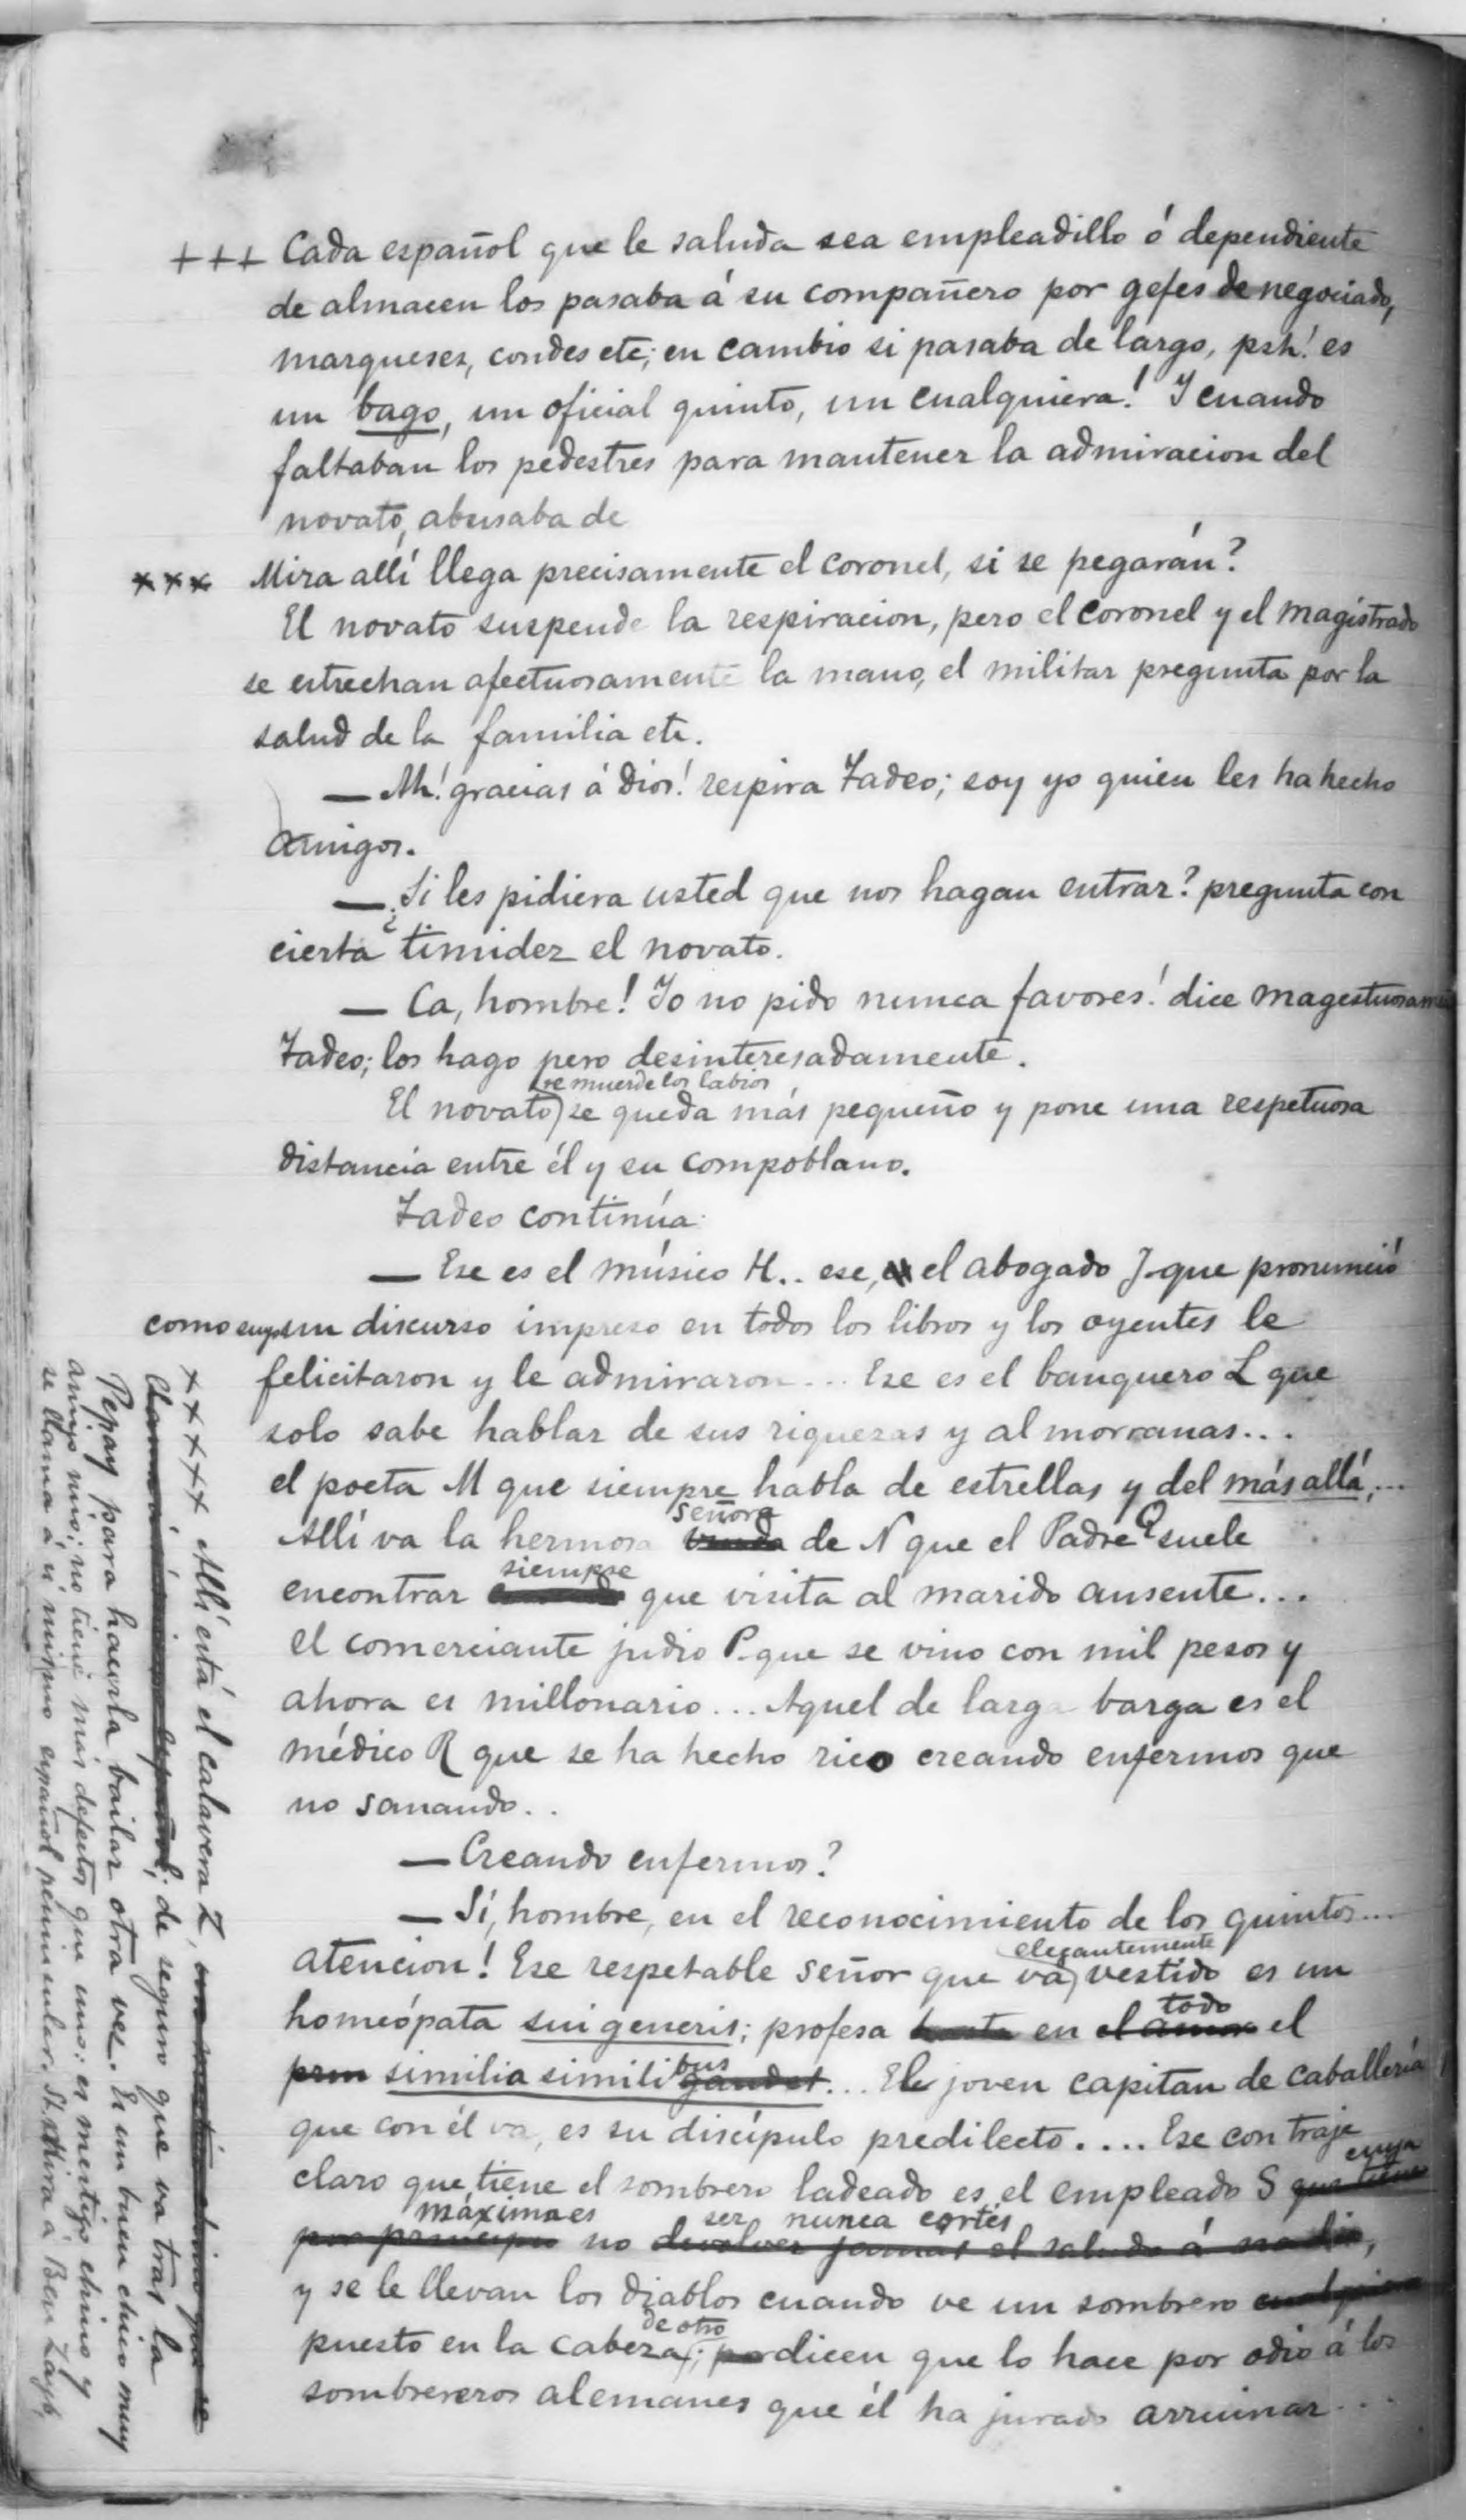 +++ Cada español que le saluda sea empleadillo ó dependiente
de almacen los pasaba á su compañero por gefes de negociado,
marqueses, condes etc; en cambio si pasaba de largo, psh! es
un bago, un oficial quinto, un cualquiera! Y cuando
faltaban los pedestres para mantener la admiracion del
novato, abusaba de
xxx Mira allí llega precisamente el coronel, si se pegarán?
El novato suspende la respiracion, pero el coronel y el magistrado
se estrechan afectuosamente la mano, el militar pregunta por la
salud de la familia etc.
— Ah! gracias á Dios! respira Tadeo; soy yo quien les ha hecho
amigos.
— ¿Si les pidiera usted que nos hagan entrar? pregunta con
cierta timidez el novato.
— Ca, hombre! Yo no pido nunca favores! dice magestuosamente
Tadeo; los hago pero desinteresadamente.
se muerde los labios
El novato, se queda más pequeño y pone una respetuosa
distancia entre él y su compoblano.
Tadeo continúa:
— Ese es el músico H.. ese, el abogado J. que pronunció
como suyo un discurso impreso en todos los libros y los oyentes le
felicitaron y le admiraron... Ese es el banquero L que
solo sabe hablar de sus riquezas y almorranas...
el poeta M que siempre habla de estrellas y del más allá,...
señora
Allí va la hermosa viuda de N que el Padre Q suele
siempre
encontrar que visita al marido ausente...
el comerciante judio P. que se vino con mil pesos y
ahora es millonario... Aquel de larga barga es el
médico R que se ha hecho rico creando enfermos que
no sanando..
— Creando enfermos?
— Sí, hombre, en el reconocimiento de los quintos...
elegantemente
atencion! Ese respetable señor que va vestido es un
todo
homeópata sui generis; profesa hasta en el amor el
bus
prin similia simili gaudet... El joven capitan de caballería
que con él va, es su discípulo predilecto.... Ese con traje
cuya
claro que tiene el sombrero ladeado es el empleado S que tiene
máxima es ser nunca cortés
por principio no devolver jamás el saludo á nadie,
y se le llevan los diablos cuando ve un sombrero
de otro
puesto en la cabeza; dicen que lo hace por odio á los
sombrereros alemanes que él ha jurado arruinar...
xxxxx Allí está el calavera Z,
de seguro que va tras la
Pepay para hacerla bailar otra vez. Es un buen chico muy
amigo mio; no tiene más defectos que uno: es mestizo chino y
se llama á sí mismo español peninsular. St. Mira á Ben Zayb,